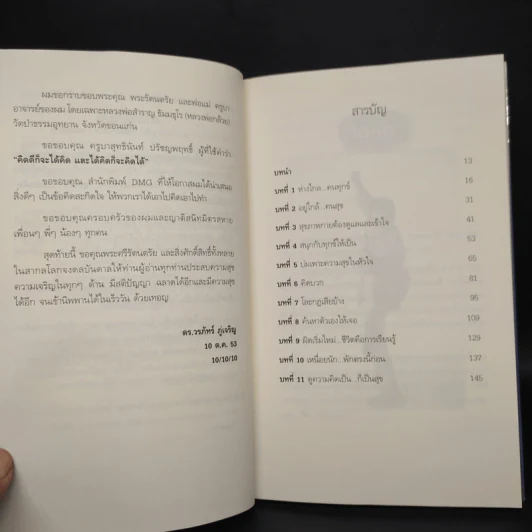 ผมขอกราบขอบพระคุณ พระรัตนตรัย และพ่อแม่ ครูบา
อาจารย์ของผม โดยเฉพาะหลวงพ่อสำราญ ธัมมธุโร (หลวงพ่อกล้วย)
วัดป่าธรรมอุทยาน จังหวัดขอนแก่น
ขอขอบคุณ ครูบาสุทธินันท์ ปรัชญพฤทธิ์ ผู้ที่ใช้คำว่า
"คิดดีก็จะได้คิด และได้คิดก็จะคิดได้"
ขอขอบคุณ สำนักพิมพ์ DMG ที่ให้โอกาสผมได้นำเสนอ
สิ่งดีๆ เป็นข้อคิดสะกิดใจ ให้พวกเราได้เอาไปคิดเอาไปทำ
ขอขอบคุณครอบครัวของผมและญาติสนิทมิตรสหาย
เพื่อนๆ พี่ๆ น้องๆ ทุกคน
สุดท้ายนี้ ขอคุณพระศรีรัตนตรัย และสิ่งศักดิ์สิทธิ์ทั้งหลาย
ในสากลโลกจงดลบันดาลให้ท่านผู้อ่านทุกท่านประสบความสุข
ความเจริญในทุกๆ ด้าน มีสติปัญญา ฉลาดได้อีกและมีความสุข
ได้อีก จนเข้านิพพานได้ในเร็ววัน ด้วยเทอญ
ดร.วรภัทร์ ภู่เจริญ
10 ต.ค. 53
10/10/10
สารบัญ
บทนำ 13
บทที่ 1 ห่างไกล...คนทุกข์ 16
บทที่ 2 อยู่ใกล้...คนสุข 31
บทที่ 3 สุขภาพกายต้องดูแลและเข้าใจ 41
บทที่ 4 สนุกกับทุกข์ให้เป็น 53
บทที่ 5 บ่มเพาะความสุขในหัวใจ 65
บทที่ 6 คิดบวก 81
บทที่ 7 โยกกฎเสียบ้าง 95
บทที่ 8 ค้นหาตัวเองให้เจอ 109
บทที่ 9 ผิดเริ่มใหม่...ชีวิตคือการเรียนรู้ 129
บทที่ 10 เหนื่อยนัก...พักตรงนี้ก่อน 137
บทที่ 11 ดูความคิดเป็น...ก็เป็นสุข 145